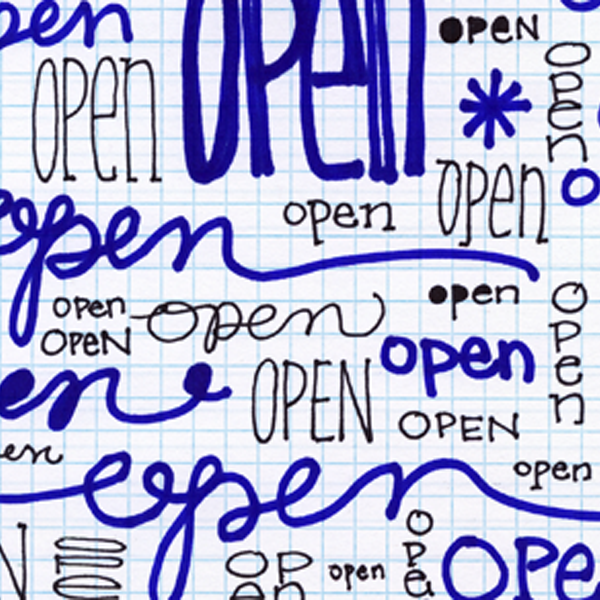 pen
OPEN
open
open
open
open
open
open
open
open
open
OPEN
open
open
open
en
OPEN
open
OPEN
en
open
open
N
open
open
open
OPe